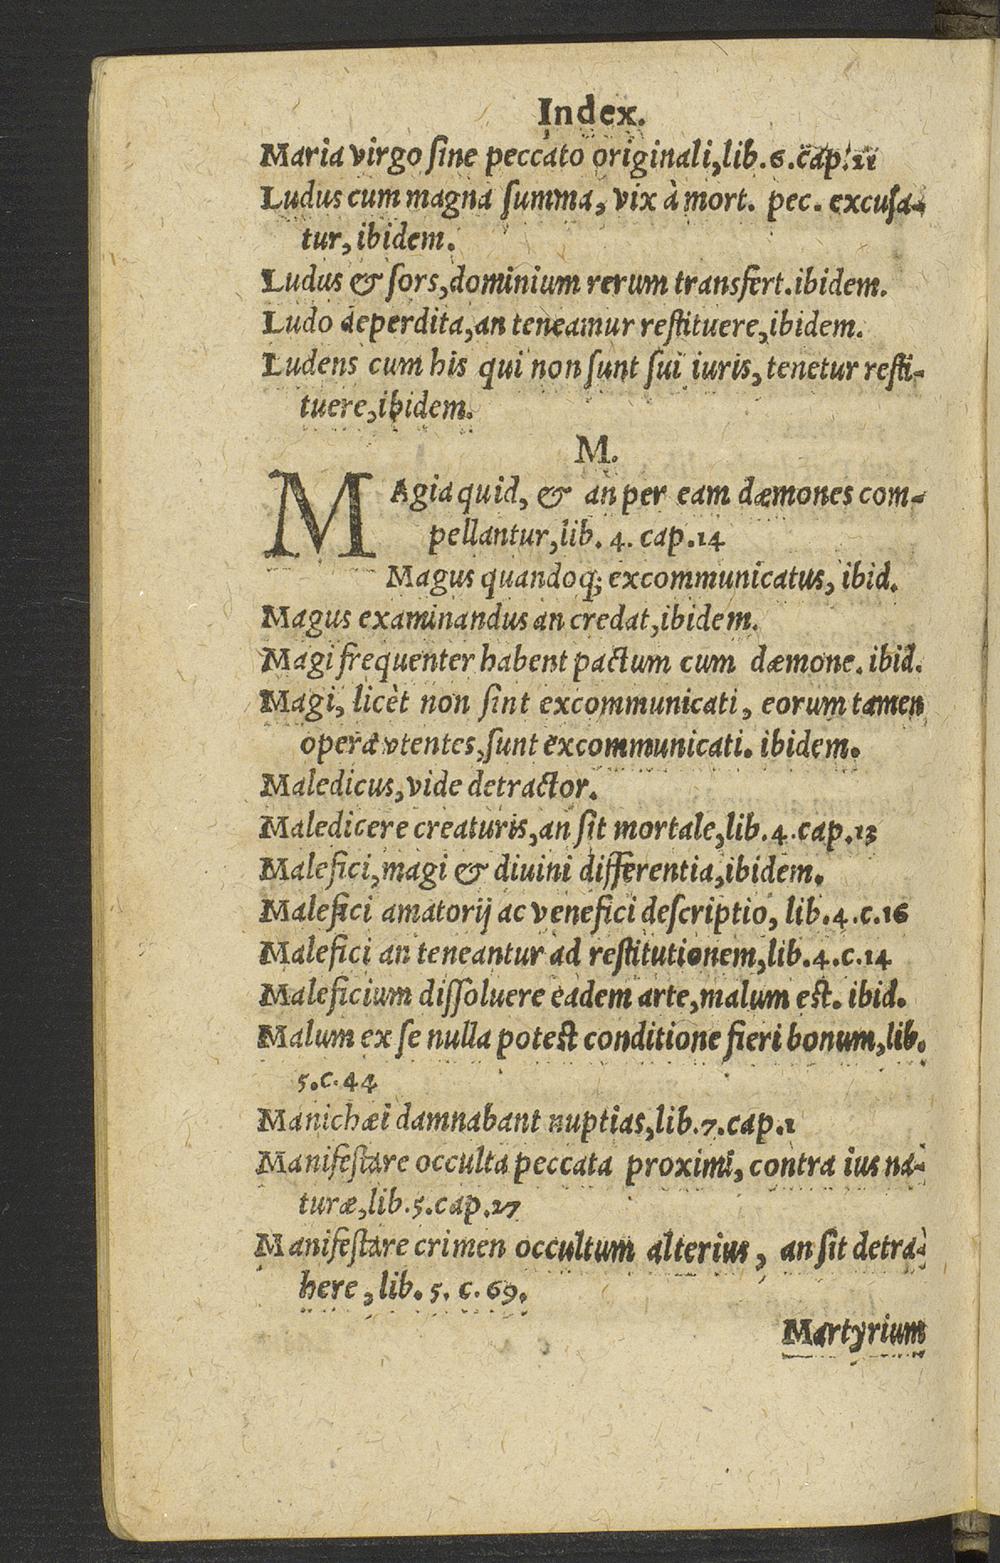 Index.
Maria virgo ſine peccato originali, lib. 6. cap. 11
Ludus cum magna ſumma, vix à mort. pec. excuſa-
tur, ibidem.
Ludus & ſors, dominium rerum transfert. ibidem.
Ludo deperdita, an teneamur reſtituere, ibidem.
Ludens cum his qui non ſunt ſui iuris, tenetur reſti-
tuere, ibidem.
M.
MAgia quid, & an per eam dæmones com-
pellantur, lib. 4. cap. 14
Magus quandoq; excommunicatus, ibid.
Magus examinandus an credat, ibidem.
Magi frequenter habent pactum cum dæmone. ibid.
Magi, licèt non ſint excommunicati, eorum tamen
opera vtentes, ſunt excommunicati. ibidem.
Maledicus, vide detractor.
Maledicere creaturis, an ſit mortale, lib. 4. cap. 13
Malefici, magi & diuini differentia, ibidem.
Malefici amatorij ac venefici deſcriptio, lib. 4. c. 16
Malefici an teneantur ad reſtitutionem, lib. 4. c. 14
Maleficium diſſoluere eadem arte, malum eſt. ibid.
Malum ex ſe nulla poteſt conditione fieri bonum, lib.
5. c. 44
Manichæi damnabant nuptias, lib. 7. cap. 1
Manifeſtare occulta peccata proximi, contra ius na-
turæ, lib. 5. cap. 27
Manifeſtare crimen occultum alterius, an ſit detra-
here, lib. 5. c. 69.
Martyrium